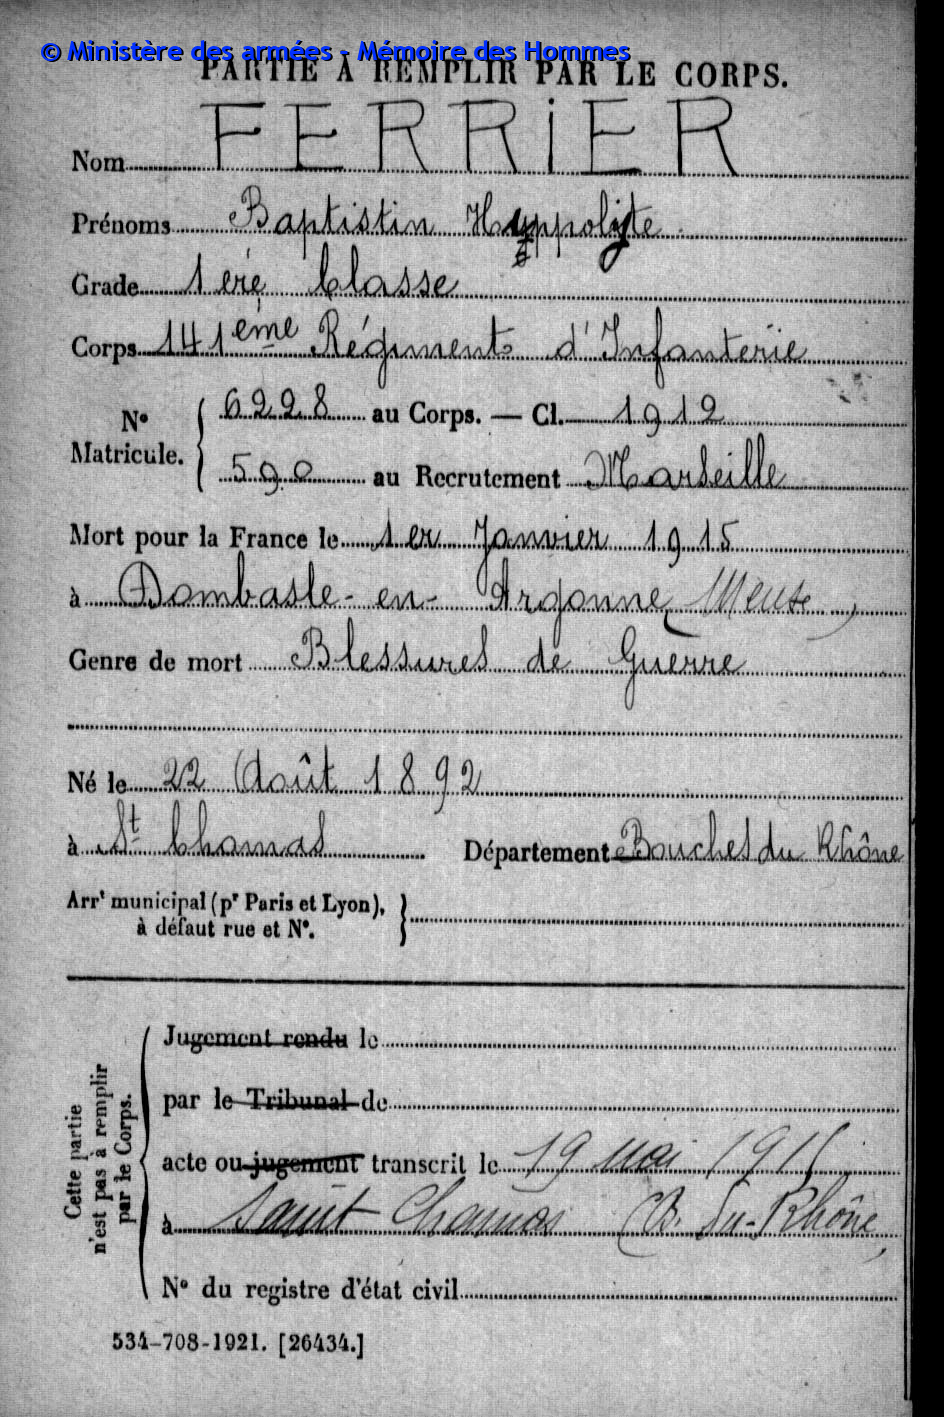 © Ministère des armées - Mémoire des Hommes
PARTIE À REMPLIR PAR LE CORPS.
Nom FERRiER
Prénoms Baptistin Hyppolyte
Grade 1ère Classe
Corps 141ème Régiment d'Infanterie
N° Matricule. { 6228 au Corps. — Cl. 1912
590 au Recrutement Marseille
Mort pour la France le 1er Janvier 1915
à Dombasle-en-Argonne (Meuse)
Genre de mort Blessures de Guerre
Né le 22 Août 1892
à St Chamas Département Bouches du Rhône
Arrt municipal (pr Paris et Lyon),
à défaut rue et N°.
Cette partie
n'est pas à remplir
par le Corps.
Jugement rendu le
par le Tribunal de
acte ou jugement transcrit le 19 mai 1915
à Saint Chamas (B. du-Rhône)
N° du registre d'état civil
534-708-1921. [26434.]